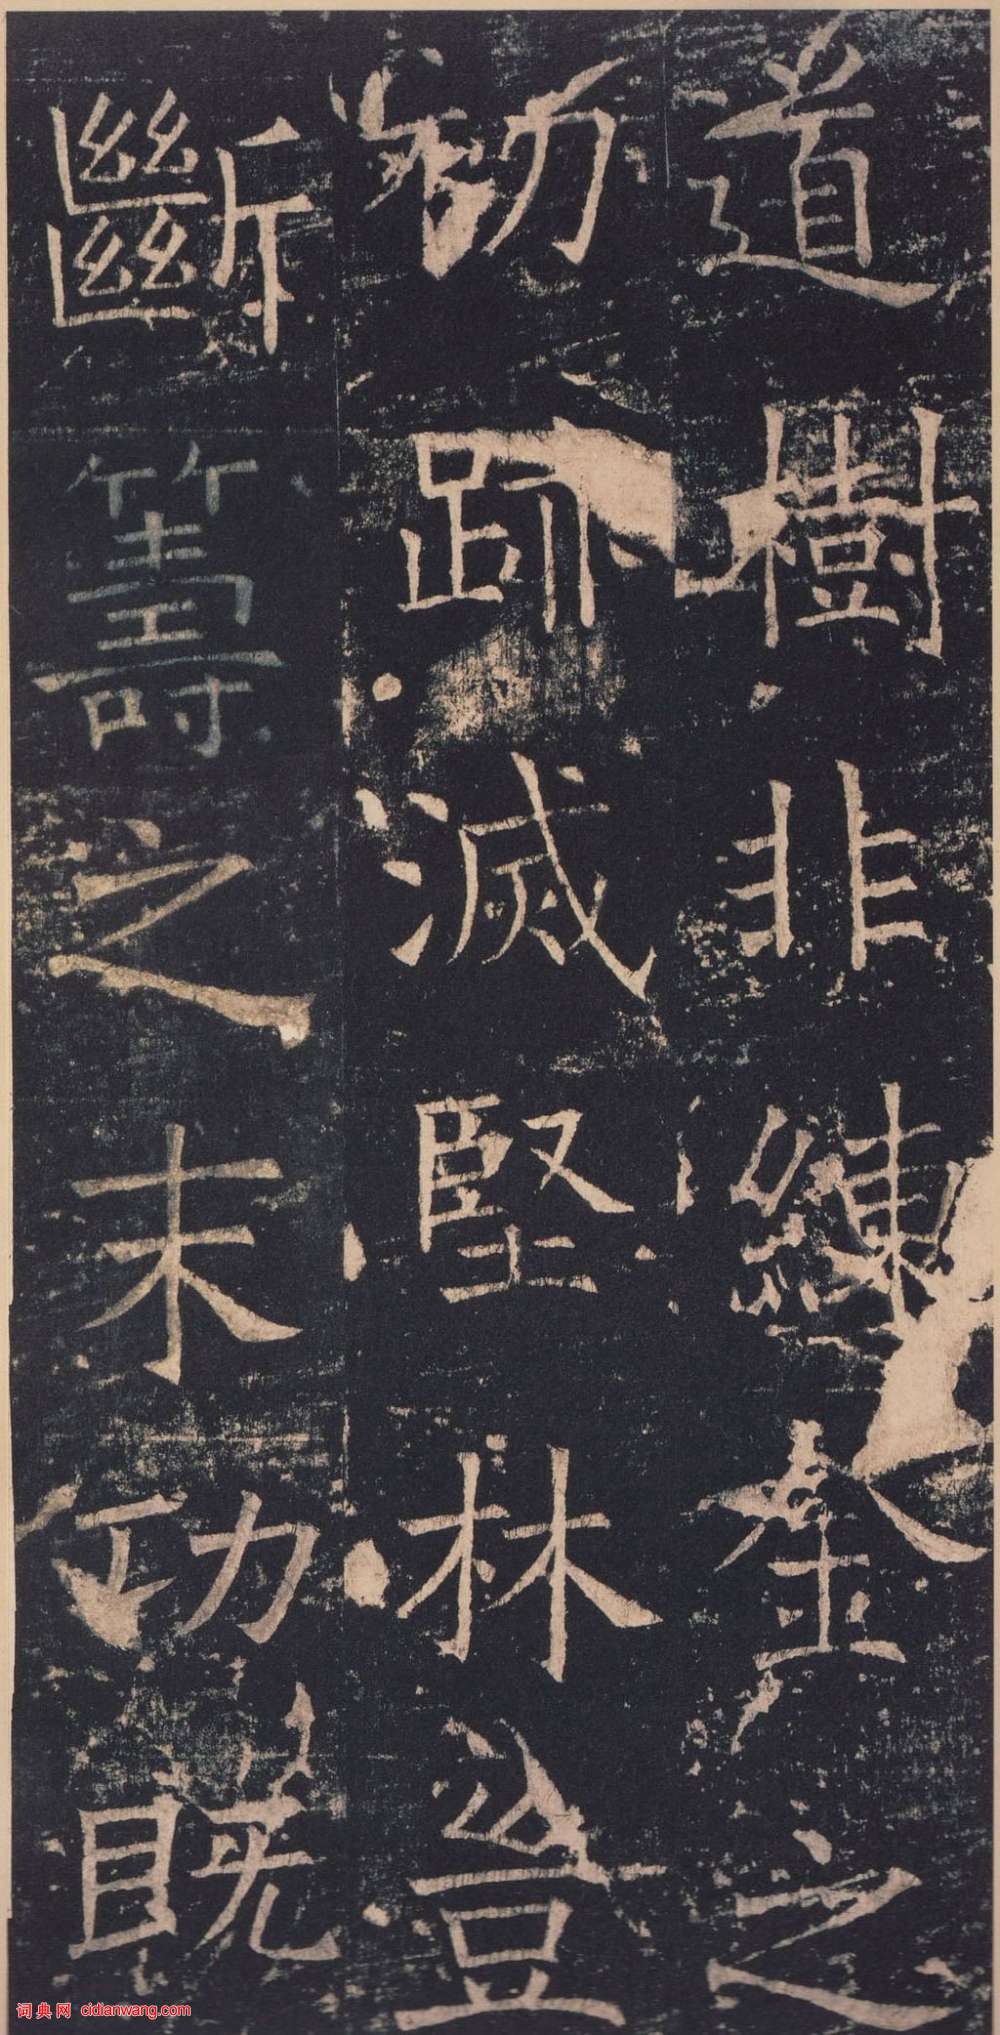 道樹非練金之
初跡滅堅林豈
斷籌之末功既
词典网 cidianwang.com